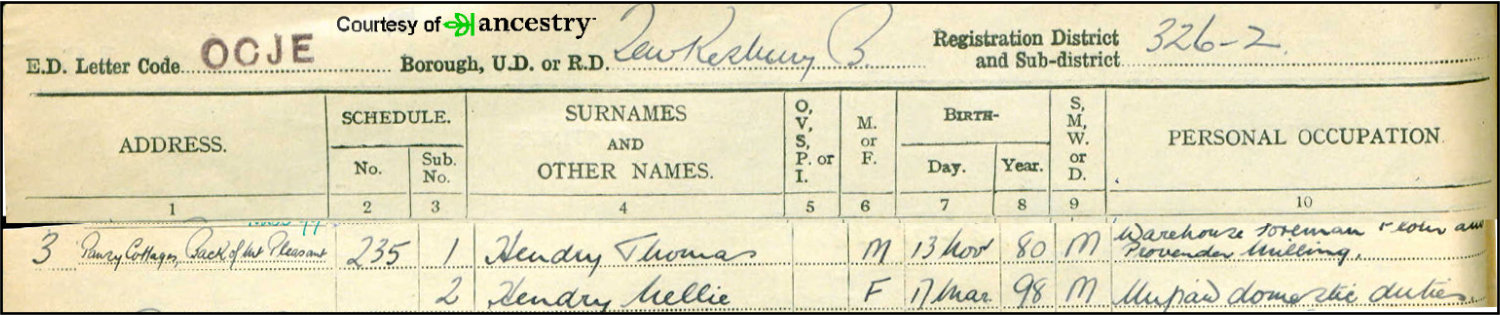 Courtesy of ancestry
E.D. Letter Code OCJE Borough, U.D. or R.D. Tewkesbury B. Registration District and Sub-district 326-2.
ADDRESS. SCHEDULE. No. Sub. No. SURNAMES AND OTHER NAMES. O, V, S, P. or I. M. or F. BIRTH- Day. Year. S, M, W. or D. PERSONAL OCCUPATION.
1 2 3 4 5 6 7 8 9 10
3 Cottages, Back of Mt Pleasant 235 1 Hendry Thomas M 13 Nov 80 M Warehouse Foreman Flour and
Provender Milling.
2 Hendry Nellie F 17 Mar 98 M Unpaid domestic duties